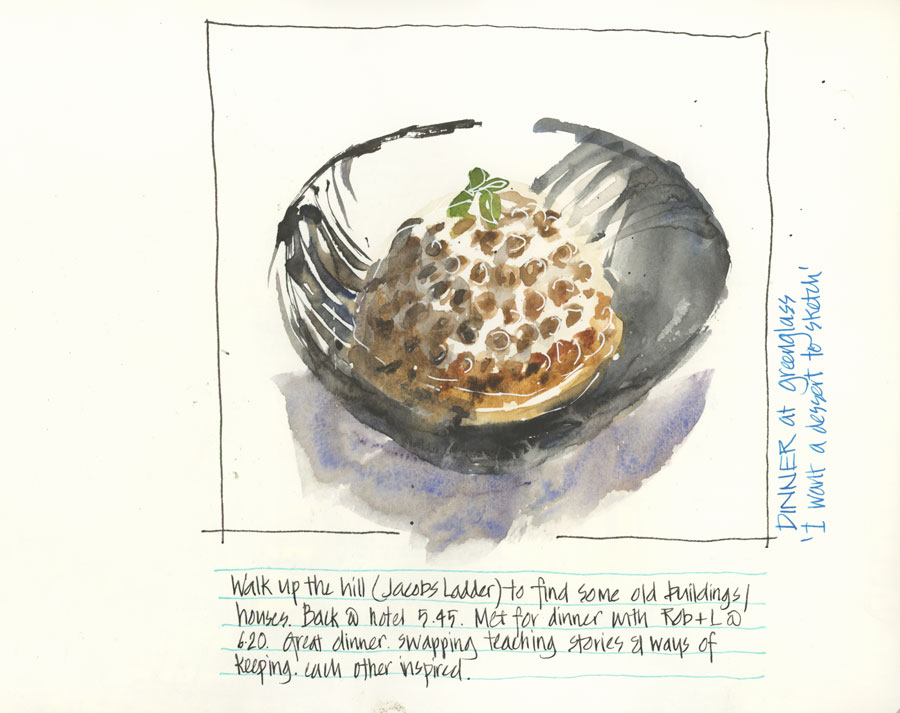 Walk up the hill (Jacobs Ladder) to find some old buildings/
houses. Back @ hotel 5.45. Met for dinner with Rob + L @
6.20. Great dinner. swapping teaching stories & ways of
keeping. each other inspired.
DINNER at greenglass
'I want a dessert to sketch'